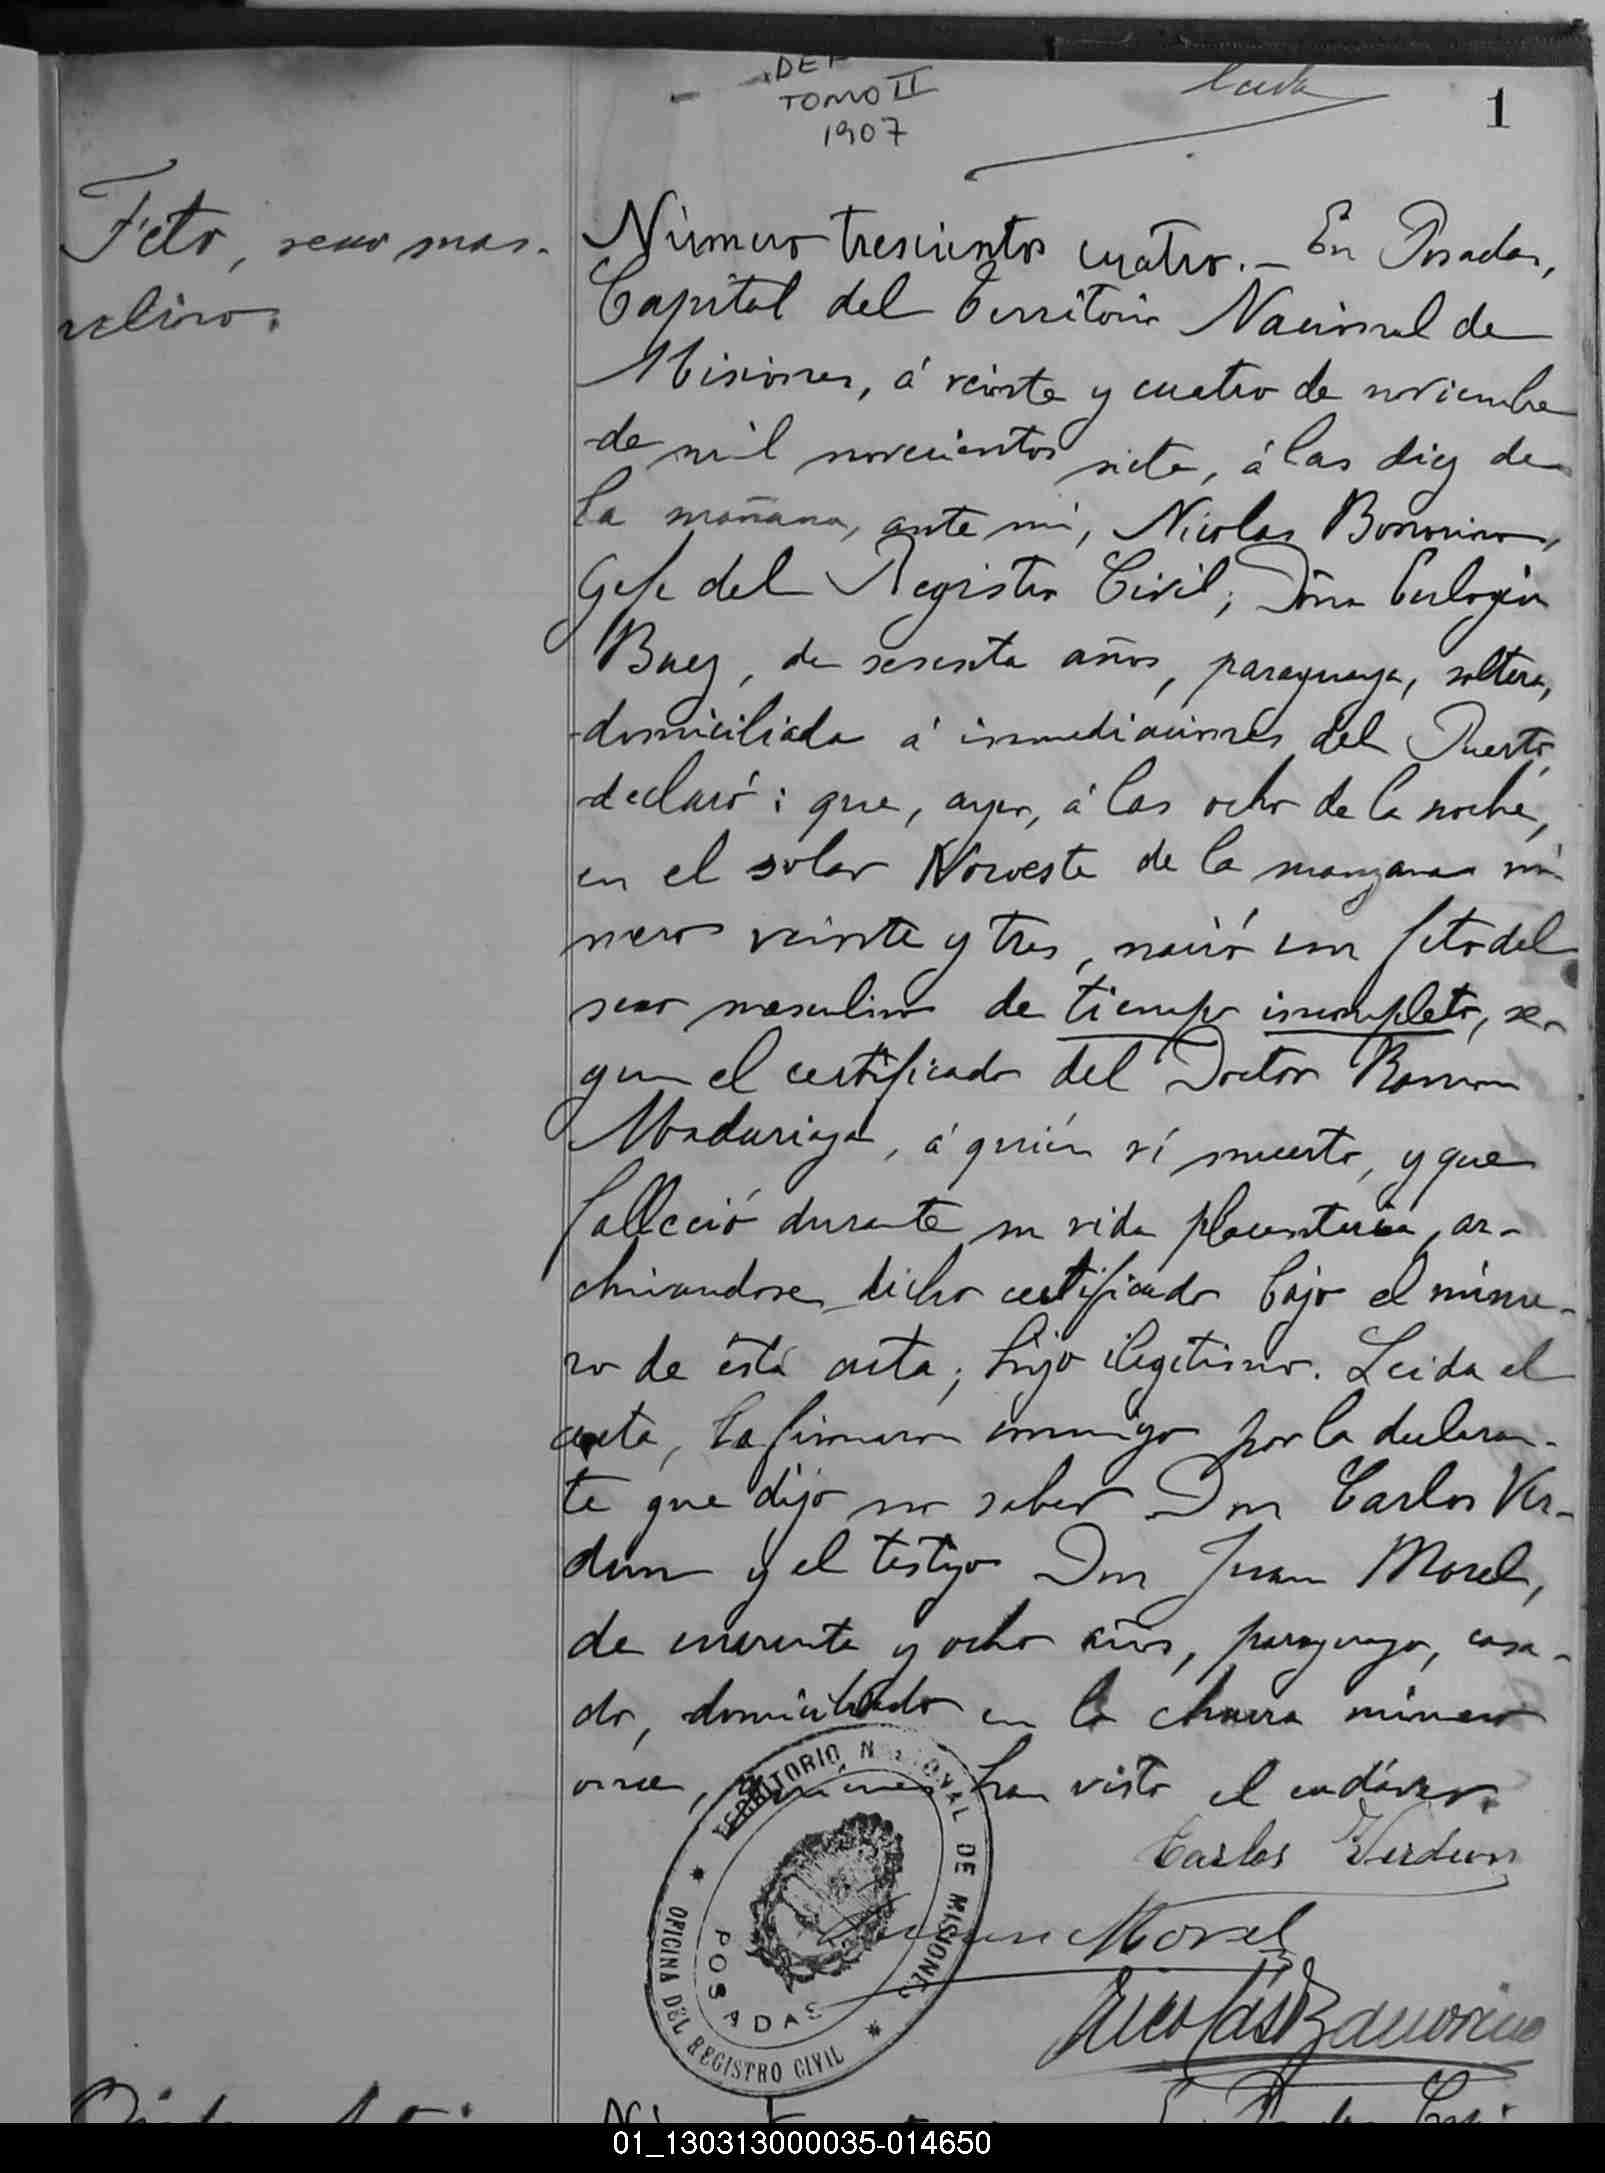 DEF
TOMO II
1907
1
Feto, sexo mas-
culino.
Número trescientos cuatro.- En Posadas,
Capital del Territorio Nacional de
Misiones, á veinte y cuatro de noviembre
de mil novecientos siete, á las diez de
la mañana, ante mi, Nicolas Bonorino,
Gefe del Registro Civil; Doña Eulogia
Baez, de sesenta años, paraguaya, soltera,
domiciliada á inmediaciones del Puerto,
declaró: que, ayer, á las ocho de la noche,
en el solar Noroeste de la manzana nú
mero veinte y tres, nació un feto del
sexo masculino de tiempo incompleto, se-
gun el certificado del Doctor Ramon
Madariaga, á quién ví muerto, y que
falleció durante su vida placentaria, ar-
chivandose dicho certificado bajo el núme-
ro de ésta acta; hijo ilegitimo. Leida el
acta, la firmaron conmigo por la declaran-
te que dijo no saber Don Carlos Ver-
dun y el testigo Don Juan Morel,
de cuarenta y ocho años, paraguayo, casa-
do, domiciliado en la chacra número
once, quienes han visto el cadáver.
Carlos Verdun
Juan Morel
Nicolás Bonorino
TERRITORIO NACIONAL DE MISIONES
POSADAS
OFICINA DEL REGISTRO CIVIL
01_130313000035-014650